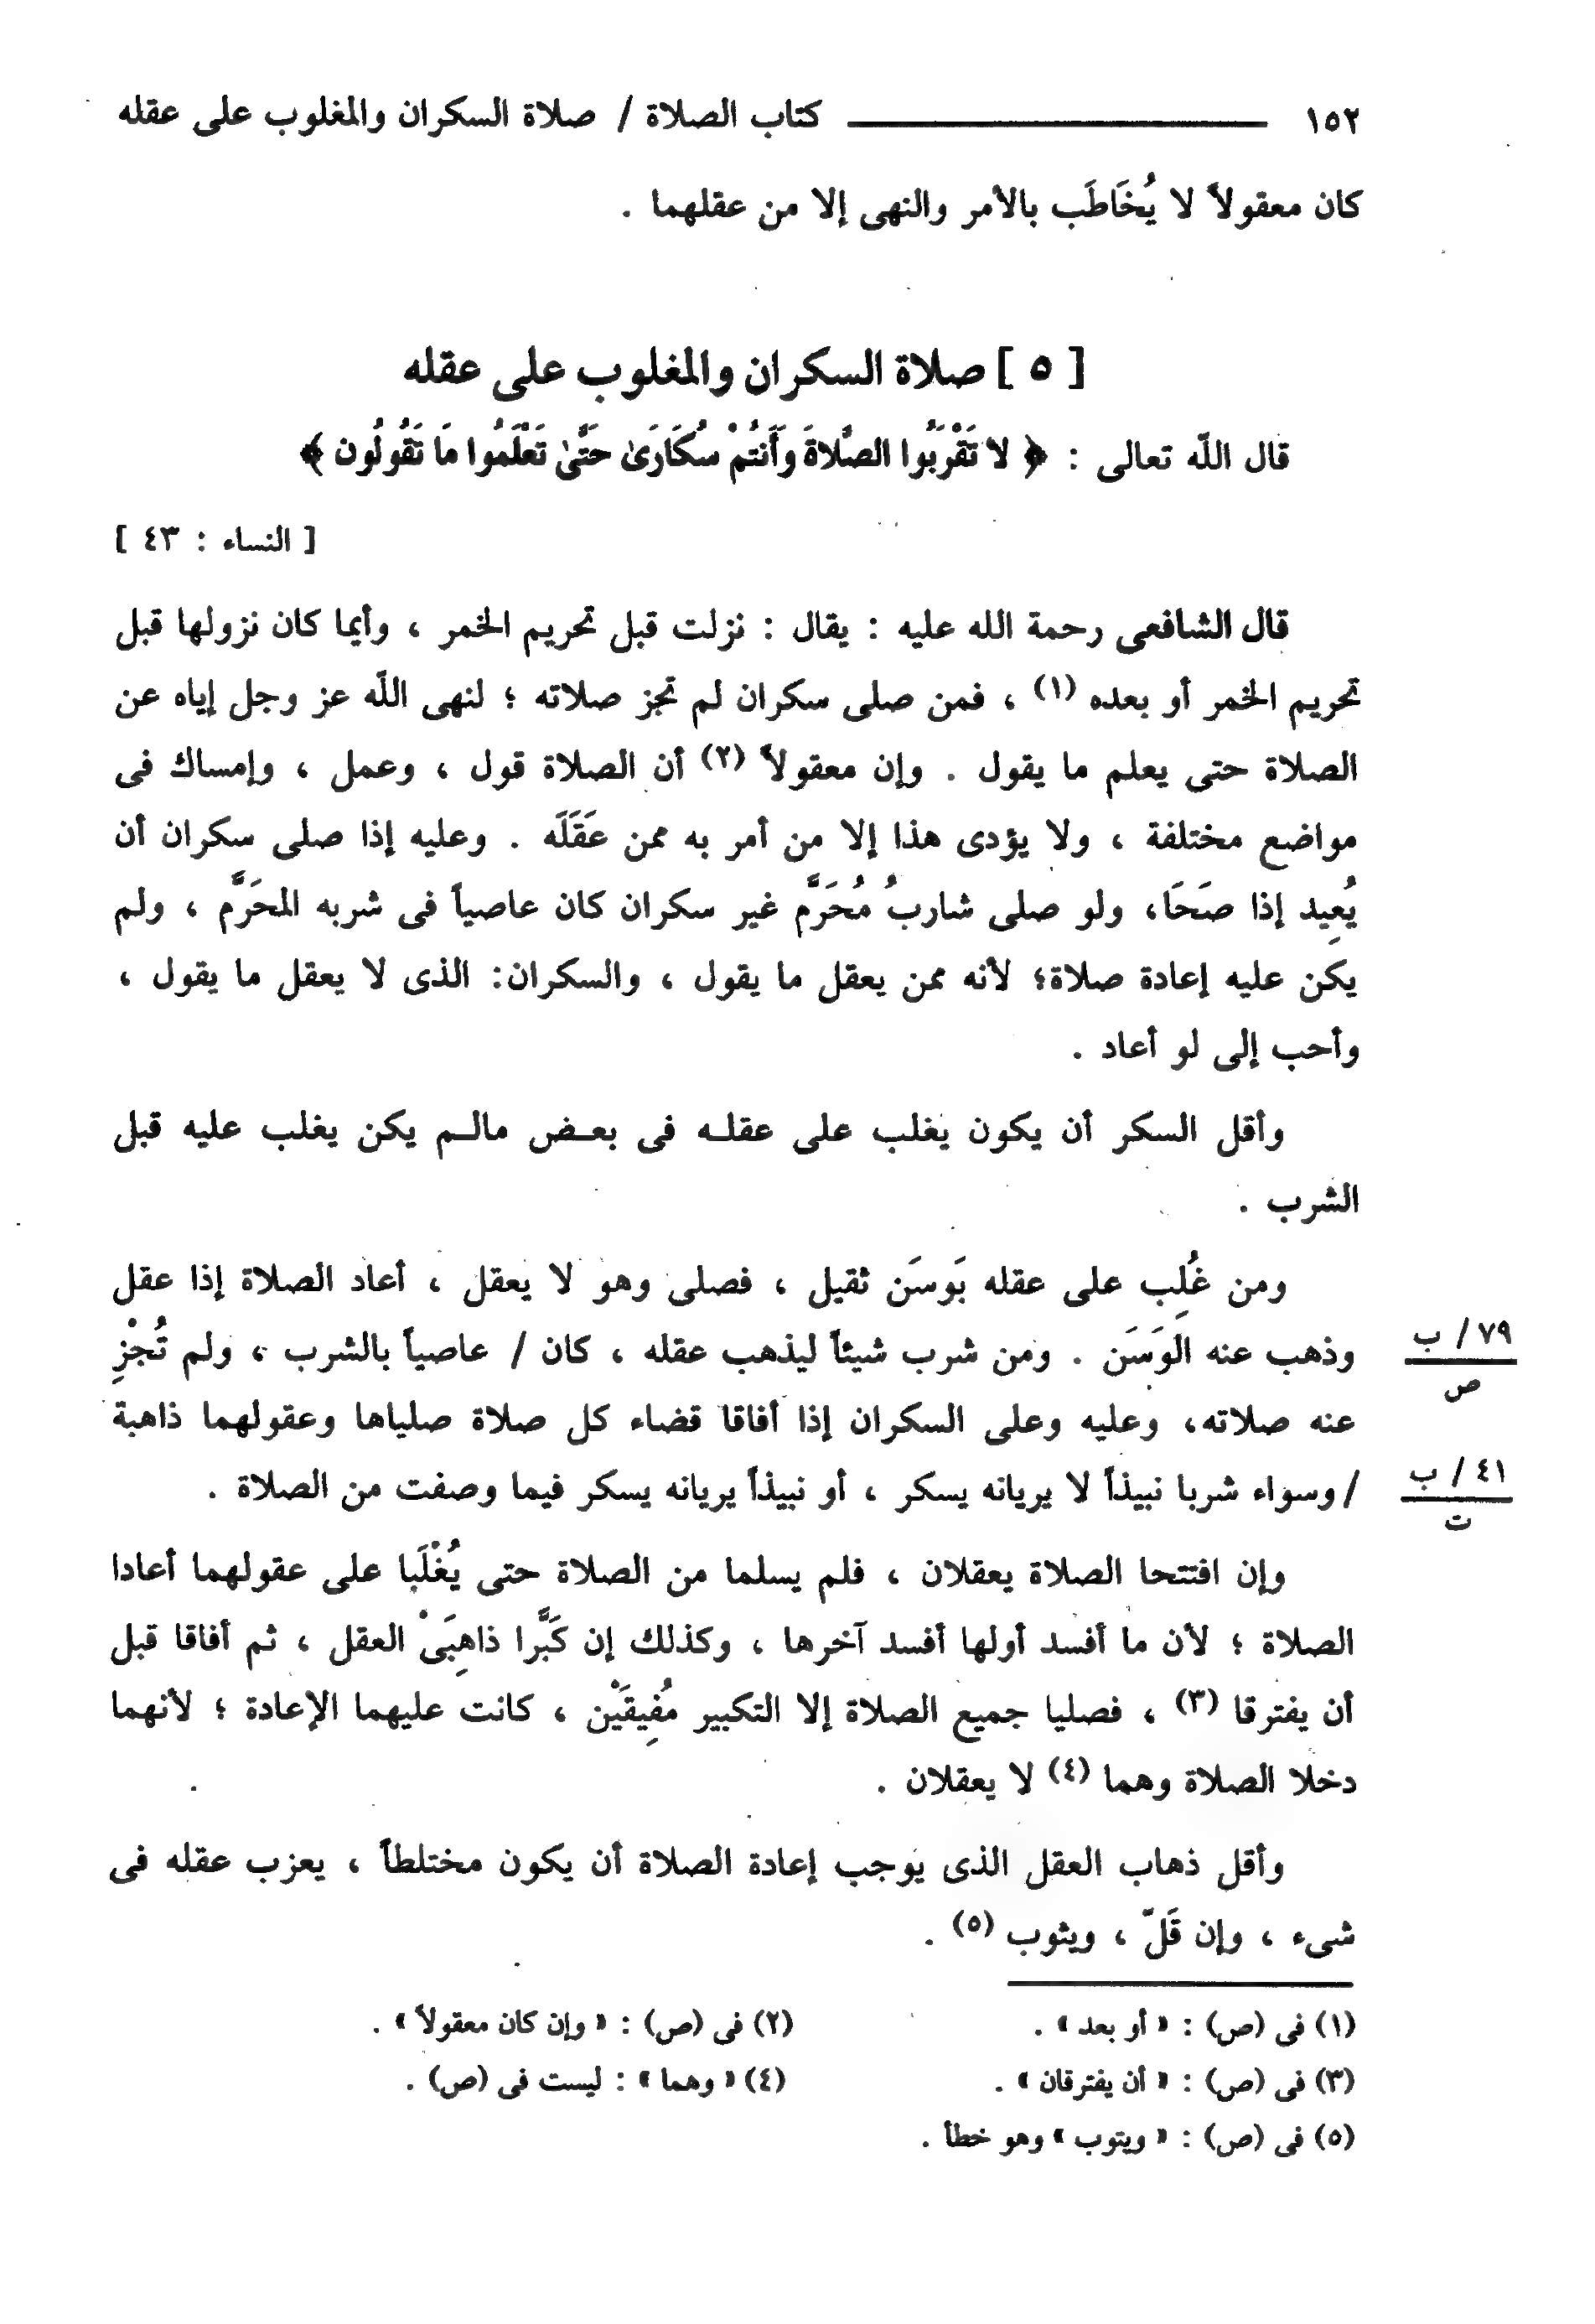 ١٥٢ كتاب الصلاة / صلاة السكران والمغلوب على عقله
كان معقولاً لا يُخَاطَب بالأمر والنهى إلا من عقلهما .
[ ٥ ] صلاة السكران والمغلوب على عقله
قال اللّه تعالى : ﴿ لا تَقْرَبُوا الصَّلاةَ وَأَنتُمْ سُكَارَىٰ حَتَّىٰ تَعْلَمُوا مَا تَقُولُون ﴾
[ النساء : ٤٣ ]
قال الشافعى رحمة الله عليه : يقال : نزلت قبل تحريم الخمر ، وأيما كان نزولها قبل
تحريم الخمر أو بعده (١) ، فمن صلى سكران لم تجز صلاته ؛ لنهى اللّه عز وجل إياه عن
الصلاة حتى يعلم ما يقول . وإن معقولاً (٢) أن الصلاة قول ، وعمل ، وإمساك فى
مواضع مختلفة ، ولا يؤدى هذا إلا من أمر به ممن عَقَلَه . وعليه إذا صلى سكران أن
يُعِيد إذا صَحَا، ولو صلى شاربُ مُحَرَّم غير سكران كان عاصياً فى شربه المحَرَّم ، ولم
يكن عليه إعادة صلاة؛ لأنه ممن يعقل ما يقول ، والسكران: الذى لا يعقل ما يقول ،
وأحب إلى لو أعاد .
وأقل السكر أن يكون يغلب على عقلـه فى بعـض مالـم يكن يغلب عليه قبل
الشرب .
ومن غُلِب على عقله بَوسَن ثقيل ، فصلى وهو لا يعقل ، أعاد الصلاة إذا عقل
وذهب عنه الوَسَن . ومن شرب شيئاً ليذهب عقله ، كان / عاصياً بالشرب ، ولم تُجْزِ
٧٩ / ب
ص
عنه صلاته، وعليه وعلى السكران إذا أفاقا قضاء كل صلاة صلياها وعقولهما ذاهبة
/ وسواء شربا نبيذاً لا يريانه يسكر ، أو نبيذاً يريانه يسكر فيما وصفت من الصلاة .
٤١ / ب
ت
وإن افتتحا الصلاة يعقلان ، فلم يسلما من الصلاة حتى يُغْلَبا على عقولهما أعادا
الصلاة ؛ لأن ما أفسد أولها أفسد آخرها ، وكذلك إن كَبَّرا ذاهِبَىْ العقل ، ثم أفاقا قبل
أن يفترقا (٣) ، فصليا جميع الصلاة إلا التكبير مُفِيقَيْن ، كانت عليهما الإعادة ؛ لأنهما
دخلا الصلاة وهما (٤) لا يعقلان .
وأقل ذهاب العقل الذى يوجب إعادة الصلاة أن يكون مختلطاً ، يعزب عقله فى
شىء ، وإن قَلّ ، ويثوب (٥) .
(١) فى (ص) : « أو بعد » . (٢) فى (ص) : « وإن كان معقولاً » .
(٣) فى (ص) : « أن يفترقان » . (٤) « وهما » : ليست فى (ص) .
(٥) فى (ص) : « ويتوب » وهو خطأ .